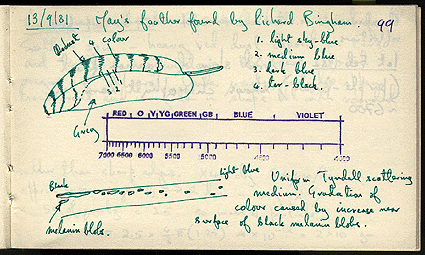 13/9/81 Jay's feather found by Richard Bingham. 99
4 colour
1. light sky-blue
2. medium blue
3. dark blue
4. tar-black.
Grey
RED O Y YG GREEN GB BLUE VIOLET
7000 6500 6000 5500 5000 4500 4000
Light blue
Black
melanin blobs.
Uniform Tyndall scattering
medium. Gradation of
colour caused by increase near
surface of black melanin blobs.